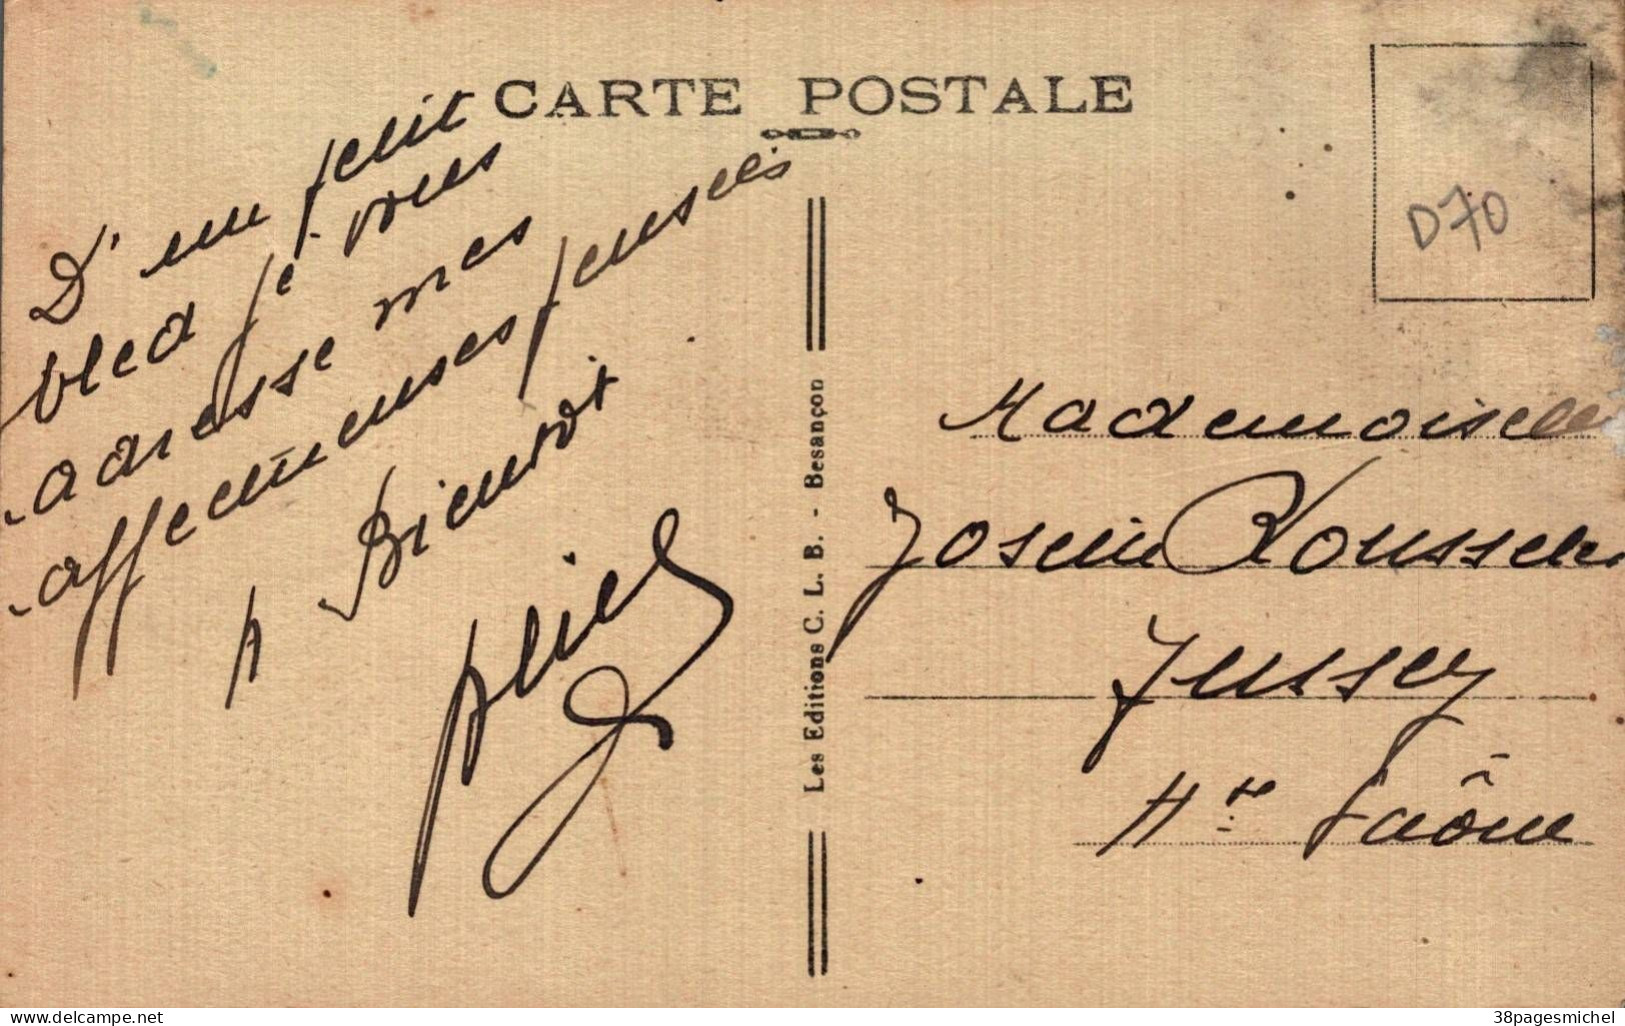 CARTE POSTALE
D'un petit
bled je vous
adresse mes
affectueuses pensées
A Bientôt
Les Editions C. L. B. - Besançon
D70
Mademoiselle
Josette Rousselet
Jussey
Hte Saône
delcampe.net
38pagesmichel